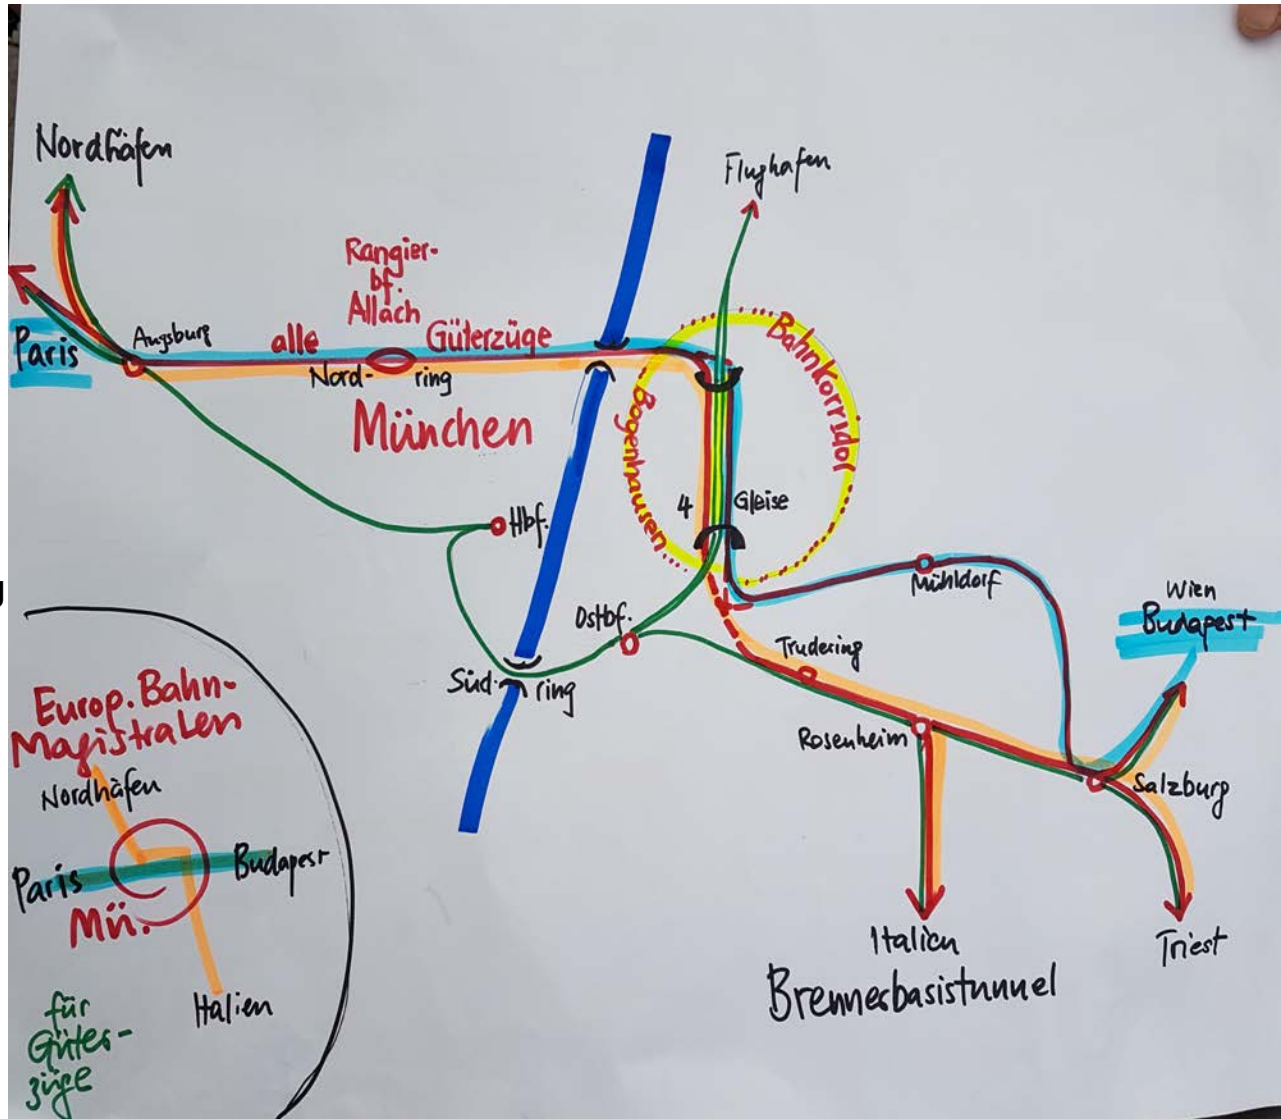 Nordhäfen
Flughafen
Rangier-
bf.
Allach
Paris
Augsburg
alle
Güterzüge
Nord-
ring
München
Bahnkorridor
Bogenhausen
4 Gleise
Hbf.
Ostbf.
Süd-
ring
Mühldorf
Wien
Budapest
Trudering
Rosenheim
Salzburg
Italien
Brennerbasistunnel
Triest
Europ. Bahn-
Magistralen
Nordhäfen
Paris
Budapest
Mü.
Italien
für
Güter-
züge